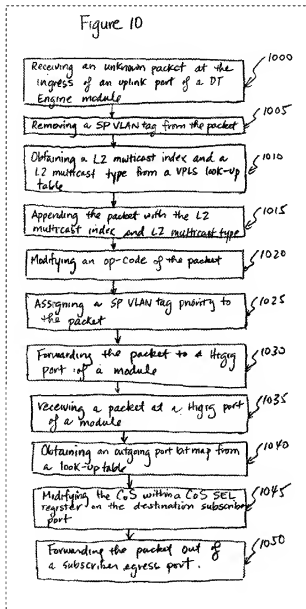 Figure 10
Receiving an unknown packet at the
ingress of an uplink port of a DT
Engine module
1000
Removing a SP VLAN tag from the packet
1005
Obtaining a L2 multicast index and a
L2 multicast type from a VPLS look-up
table
1010
Appending the packet with the L2
multicast index and L2 multicast type
1015
Modifying an op-code of the packet
1020
Assigning a SP VLAN tag priority to
the packet
1025
Forwarding the packet to a Higig
port of a module
1030
receiving a packet at a Higig port
of a module
1035
Obtaining an outgoing port bitmap from
a look-up table
1040
Modifying the CoS within a CoS SEL
register on the destination subscriber
port
1045
Forwarding the packet out of
a subscriber egress port.
1050